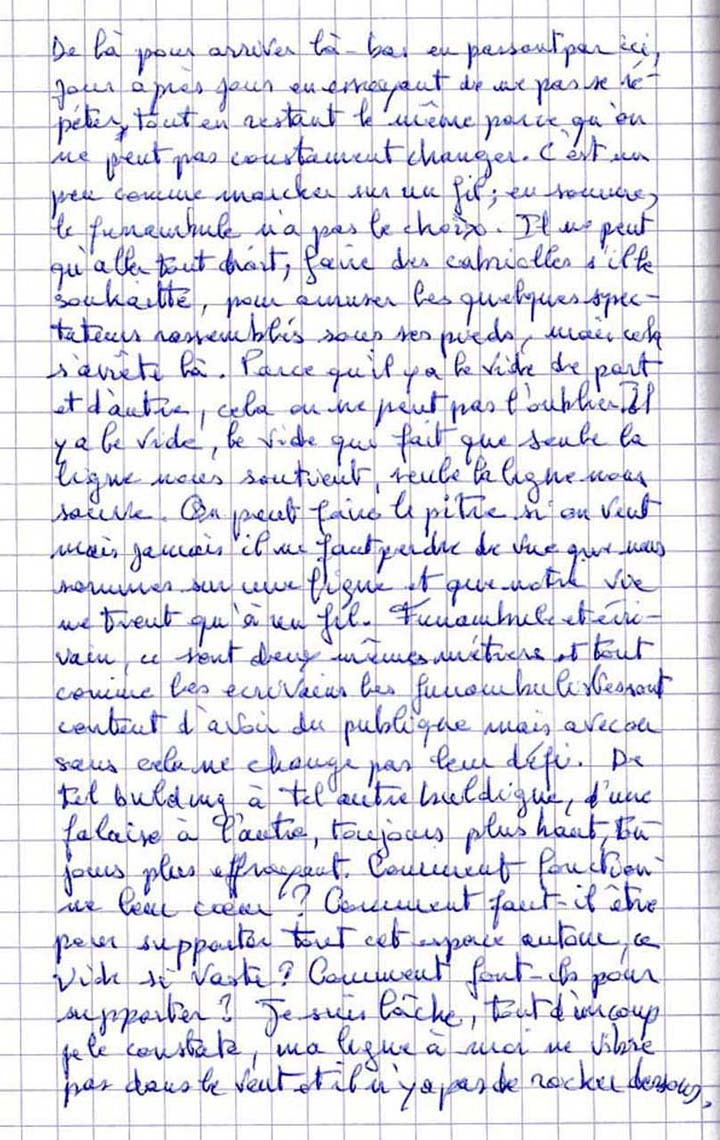 De là pour arriver là-bas en passant par ici,
jour après jour en essayant de ne pas se ré-
péter, tout en restant le même parce qu'on
ne peut pas constament changer. C'est un
peu comme marcher sur un fil; en somme,
le funambule n'a pas le choix. Il ne peut
qu'aller tout droit, faire des cabriolles s'il le
souhaitte, pour amuser les quelques spec-
tateurs rassemblés sous ses pieds, mais cela
s'arrête là. Parce qu'il y a le vide de part
et d'autre, cela on ne peut pas l'oublier. Il
y a le vide, le vide qui fait que seule la
ligne nous soutient, seule la ligne nous
sauve. On peut faire le pitre si on veut
mais jamais il ne faut perdre de vue que nous
sommes sur une ligne et que notre vie
ne tient qu'à un fil. Funambule et écri-
vain, ce sont deux mêmes métiers et tout
comme les ecrivains les funambulistes sont
content d'avoir du publique mais avec ou
sans cela ne change pas leur défi. De
tel bulding à tel autre buldigue, d'une
falaise à l'autre, toujours plus haut, tou-
jours plus effrayant. Comment fonction-
ne leur coeur ? Comment faut-il être
pour supporter tout cet espace autour, ce
vide si vaste ? Comment font-ils pour
supporter ? Je suis lâche, tout d'un coup
je le constate, ma ligne à moi ne vibre
pas dans le vent et il n'y a pas de rocher dessous,